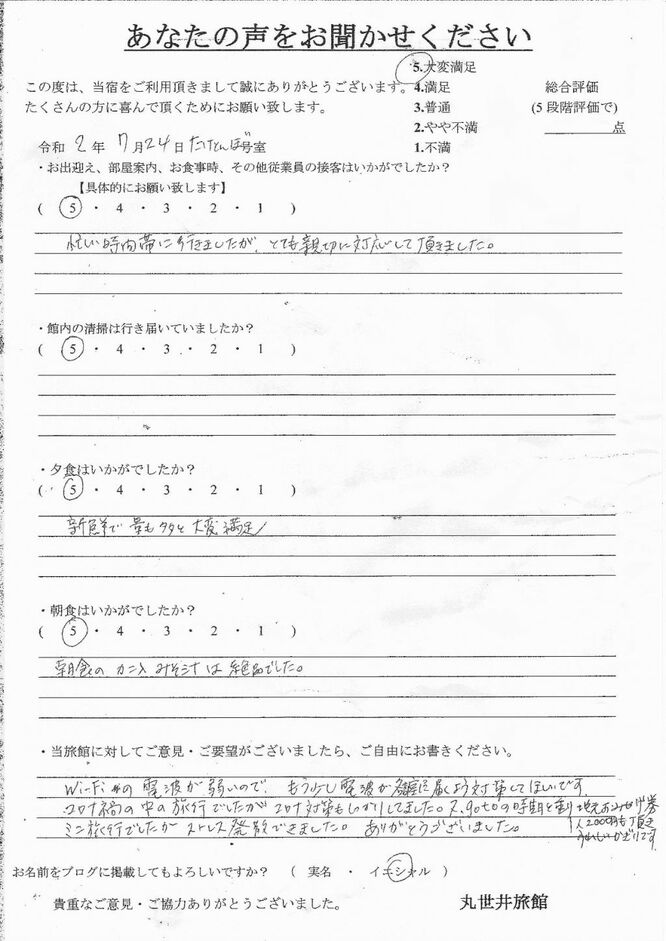 あなたの声をお聞かせください
この度は、当宿をご利用頂きまして誠にありがとうございます。
たくさんの方に喜んで頂くためにお願い致します。
5.大変満足
4.満足
3.普通
2.やや不満
1.不満
総合評価
(5段階評価で)
点
令和 2 年 7 月 24 日 たけとんぼ 号室
・お出迎え、部屋案内、お食事時、その他従業員の接客はいかがでしたか？
【具体的にお願い致します】
( 5 ・ 4 ・ 3 ・ 2 ・ 1 )
忙しい時間帯に行きましたが、とても親切に対応して頂きました。
・館内の清掃は行き届いていましたか？
( 5 ・ 4 ・ 3 ・ 2 ・ 1 )
・夕食はいかがでしたか？
( 5 ・ 4 ・ 3 ・ 2 ・ 1 )
新鮮で量も多々と大変満足
・朝食はいかがでしたか？
( 5 ・ 4 ・ 3 ・ 2 ・ 1 )
朝食のカニ入みそ汁は絶品でした。
・当旅館に対してご意見・ご要望がございましたら、ご自由にお書きください。
Wi-Fiの電波が弱いので、もう少し電波が各部屋に届くよう対策してほしいです
コロナ禍の中の旅行でしたがコロナ対策もしっかりしてました。又、gotoの時期と
ミニ旅行でしたがストレス発散できました。ありがとうございました。
1人2000円も頂き
うれしいかぎりです。
お名前をブログに掲載してもよろしいですか？ ( 実名 ・ イニシャル )
貴重なご意見・ご協力ありがとうございました。
丸世井旅館